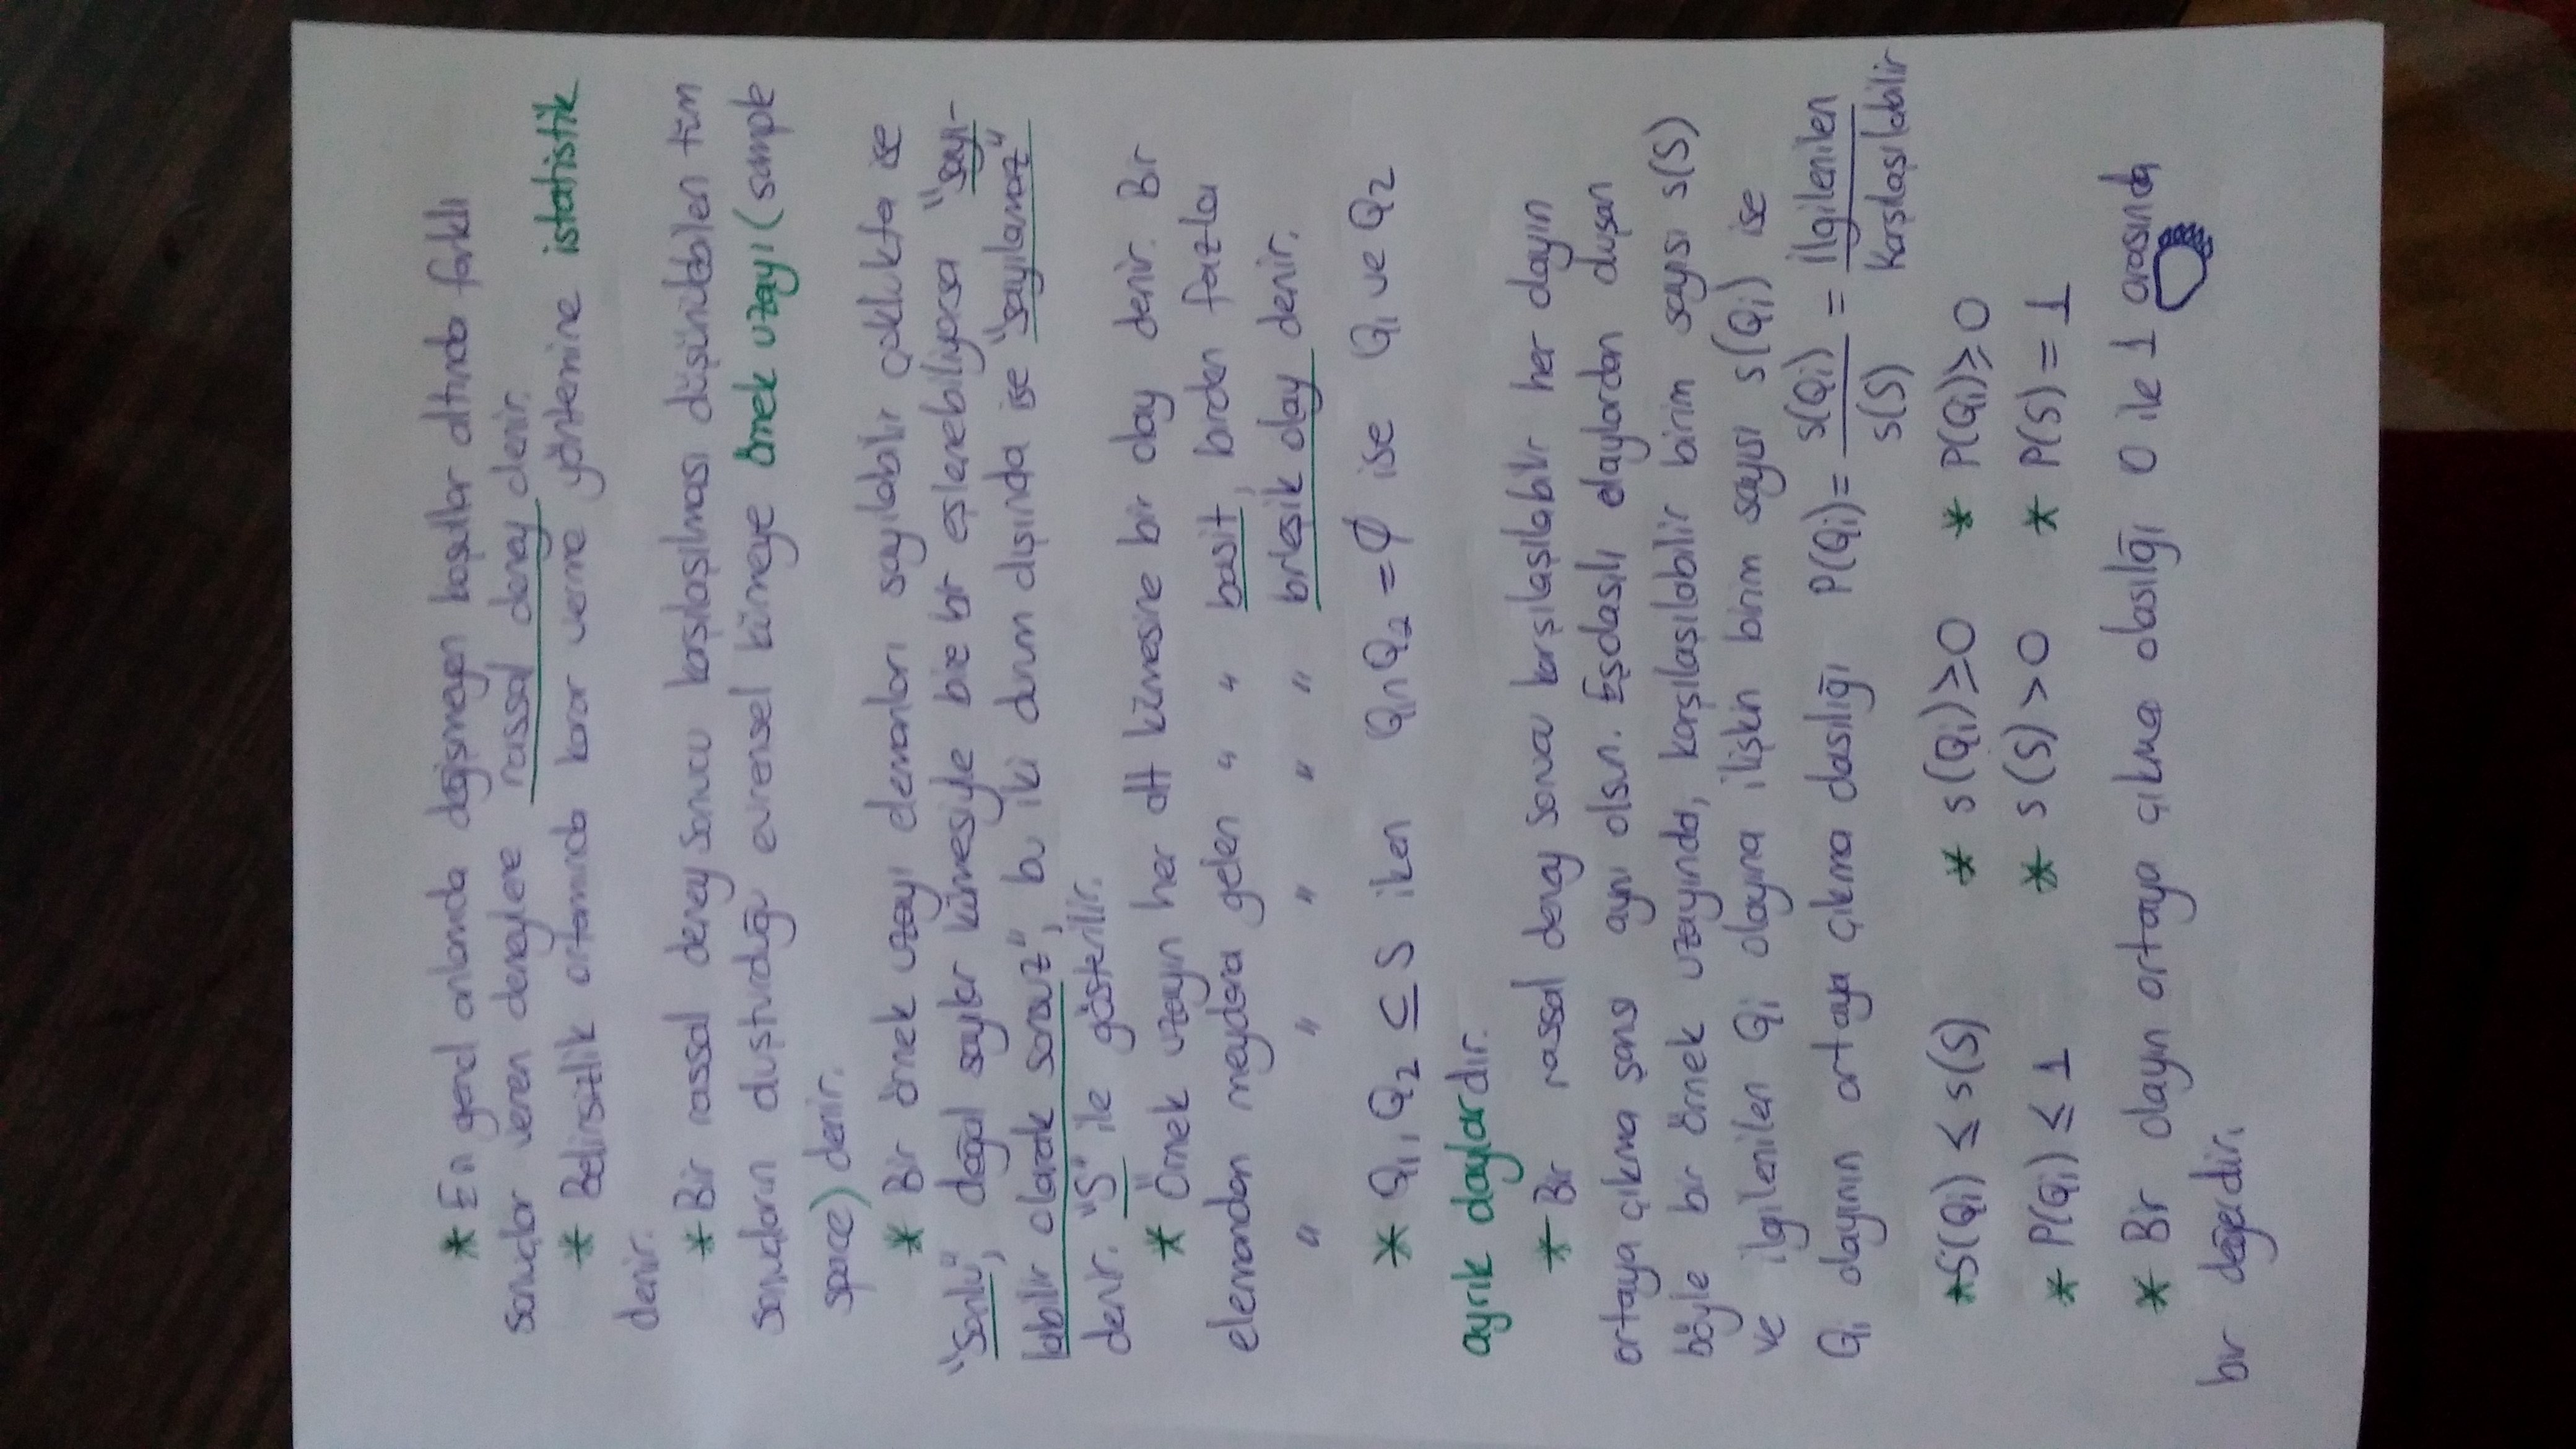 * En genel anlamda değişmeyen koşullar altında farklı
sonuçlar veren deneylere rassal deney denir.
* Belirsizlik ortamında karar verme yöntemine istatistik
denir.
* Bir rassal deney sonucu karşılaşılması düşünülebilen tüm
sonuçların oluşturduğu evrensel kümeye örnek uzayı (sample
space) denir.
* Bir örnek uzayı elemanları sayılabilir çoklukta ise
"sonlu", doğal sayılar kümesiyle bire bir eşlenebiliyorsa "sayı-
labilir olarak sonsuz", bu iki durum dışında ise "sayılamaz"
denir. "S" ile gösterilir.
* Örnek uzayın her alt kümesine bir olay denir. Bir
elemandan meydana gelen " " basit, birden fazla
" " " " " birleşik olay denir.
* Q₁, Q₂ ⊆ S iken Q₁∩Q₂ = ∅ ise Q₁ ve Q₂
ayrık olaylardır.
* Bir rassal deney sonucu karşılaşılabilir her olayın
ortaya çıkma şansı aynı olsun. Eşolasılı olaylardan oluşan
böyle bir örnek uzayında, karşılaşılabilir birim sayısı s(S)
ve ilgilenilen Qi olayına ilişkin birim sayısı s(Qi) ise
Qi olayının ortaya çıkma olasılığı P(Qi) = s(Qi)/s(S) = İlgilenilen/Karşılaşılabilir
* S(Qi) ≤ s(S) * s(Qi) ≥ 0 * P(Qi) ≥ 0
* P(Qi) ≤ 1 * s(S) > 0 * P(S) = 1
* Bir olayın ortaya çıkma olasılığı 0 ile 1 arasında
bir değerdir.